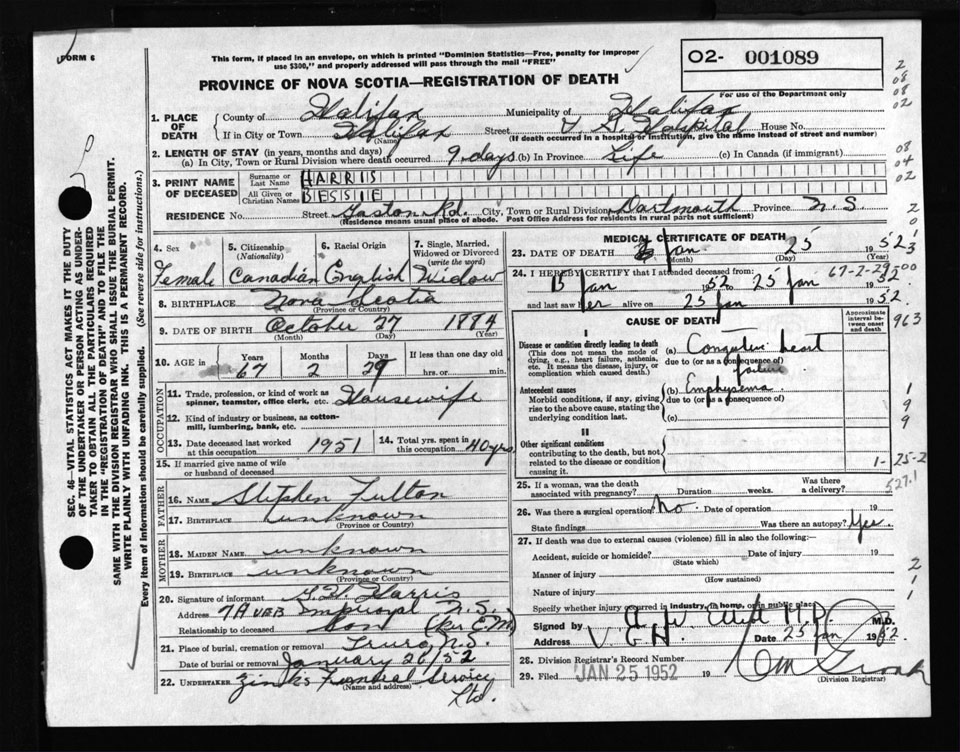 FORM 6
This form, if placed in an envelope, on which is printed "Dominion Statistics—Free, penalty for improper
use $300," and properly addressed will pass through the mail "FREE"
O2- 001089
For use of the Department only
PROVINCE OF NOVA SCOTIA—REGISTRATION OF DEATH
1. PLACE OF DEATH
County of Halifax Municipality of Halifax
If in City or Town Halifax Street V. G. Hospital House No.
(Name) (If death occurred in a hospital or institution, give the name instead of street and number)
2. LENGTH OF STAY (in years, months and days)
(a) In City, Town or Rural Division where death occurred 9 days (b) In Province Life (c) In Canada (if immigrant)
3. PRINT NAME OF DECEASED
Surname or Last Name HARRIS
All Given or Christian Names BESSIE
RESIDENCE No. Street Gaston Rd. City, Town or Rural Division Dartmouth Province N.S.
(Residence means usual place of abode. Post Office Address for residents in rural parts not sufficient)
4. Sex 5. Citizenship (Nationality) 6. Racial Origin 7. Single, Married, Widowed or Divorced (write the word)
Female Canadian English Widow
8. BIRTHPLACE Nova Scotia
(Province or Country)
9. DATE OF BIRTH October 27 1884
(Month) (Day) (Year)
10. AGE in Years Months Days If less than one day old
67 2 29 hrs. or min.
OCCUPATION
11. Trade, profession, or kind of work as spinner, teamster, office clerk, etc. Housewife
12. Kind of industry or business, as cotton-mill, lumbering, bank, etc.
13. Date deceased last worked at this occupation 1951 14. Total yrs. spent in this occupation 40 yrs
15. If married give name of wife or husband of deceased
FATHER
16. NAME Stephen Fulton
17. BIRTHPLACE unknown
(Province or Country)
MOTHER
18. MAIDEN NAME unknown
19. BIRTHPLACE unknown
(Province or Country)
20. Signature of informant Harris
Address N.S.
Relationship to deceased Son (per E.M.)
21. Place of burial, cremation or removal Truro, N.S.
Date of burial or removal January 26/52
22. UNDERTAKER Zinck's Funeral Service Ltd.
(Name and address)
MEDICAL CERTIFICATE OF DEATH
23. DATE OF DEATH Jan 25 1952
(Month) (Day)
24. I HEREBY CERTIFY that I attended deceased from: 67-2-29
Jan 1952 to 25 Jan 1952
and last saw her alive on 25 Jan 1952.
CAUSE OF DEATH
Approximate interval between onset and death
I
Disease or condition directly leading to death
(This does not mean the mode of dying, e.g., heart failure, asthenia, etc. It means the disease, injury, or complication which caused death.)
(a) Congestive heart failure
due to (or as a consequence of)
Antecedent causes
Morbid conditions, if any, giving rise to the above cause, stating the underlying condition last.
(b) Emphysema
due to (or as a consequence of)
(c)
II
Other significant conditions
contributing to the death, but not related to the disease or condition causing it.
1- 25-2
527.1
25. If a woman, was the death associated with pregnancy? Duration weeks. Was there a delivery?
26. Was there a surgical operation? No. Date of operation 19
State findings Was there an autopsy? Yes
27. If death was due to external causes (violence) fill in also the following:—
Accident, suicide or homicide? Date of injury 19
(State which)
Manner of injury
(How sustained)
Nature of injury
Specify whether injury occurred in industry, in home, or in public place
Signed by M.D.
Address V.G.H. Date 25 Jan 1952.
28. Division Registrar's Record Number
29. Filed JAN 25 1952 19
(Division Registrar)
SEC. 46—VITAL STATISTICS ACT MAKES IT THE DUTY
OF THE UNDERTAKER OR PERSON ACTING AS UNDER-
TAKER TO OBTAIN ALL THE PARTICULARS REQUIRED
IN THE "REGISTRATION OF DEATH" AND TO FILE THE
SAME WITH THE DIVISION REGISTRAR WHO SHALL ISSUE THE BURIAL PERMIT.
WRITE PLAINLY WITH UNFADING INK. THIS IS A PERMANENT RECORD.
Every item of information should be carefully supplied. (See reverse side for instructions.)
2
08
08
02
08
04
02
963
1
9
9
2
1
1